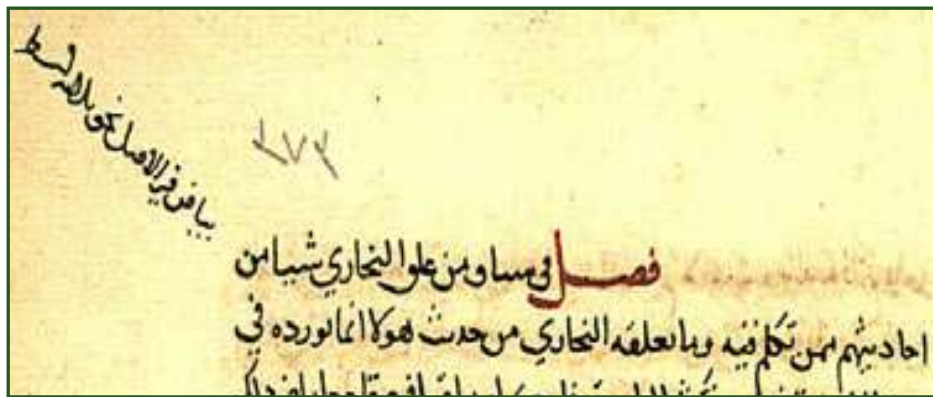 بياض في الاصل نحو ثلاثة اسطر
٣٧٣
فصل في سياق من علق البخاري شيبا من
احاديثهم ممن تكلم فيه وما يعلقه البخاري من حديث هولا انما يورده في